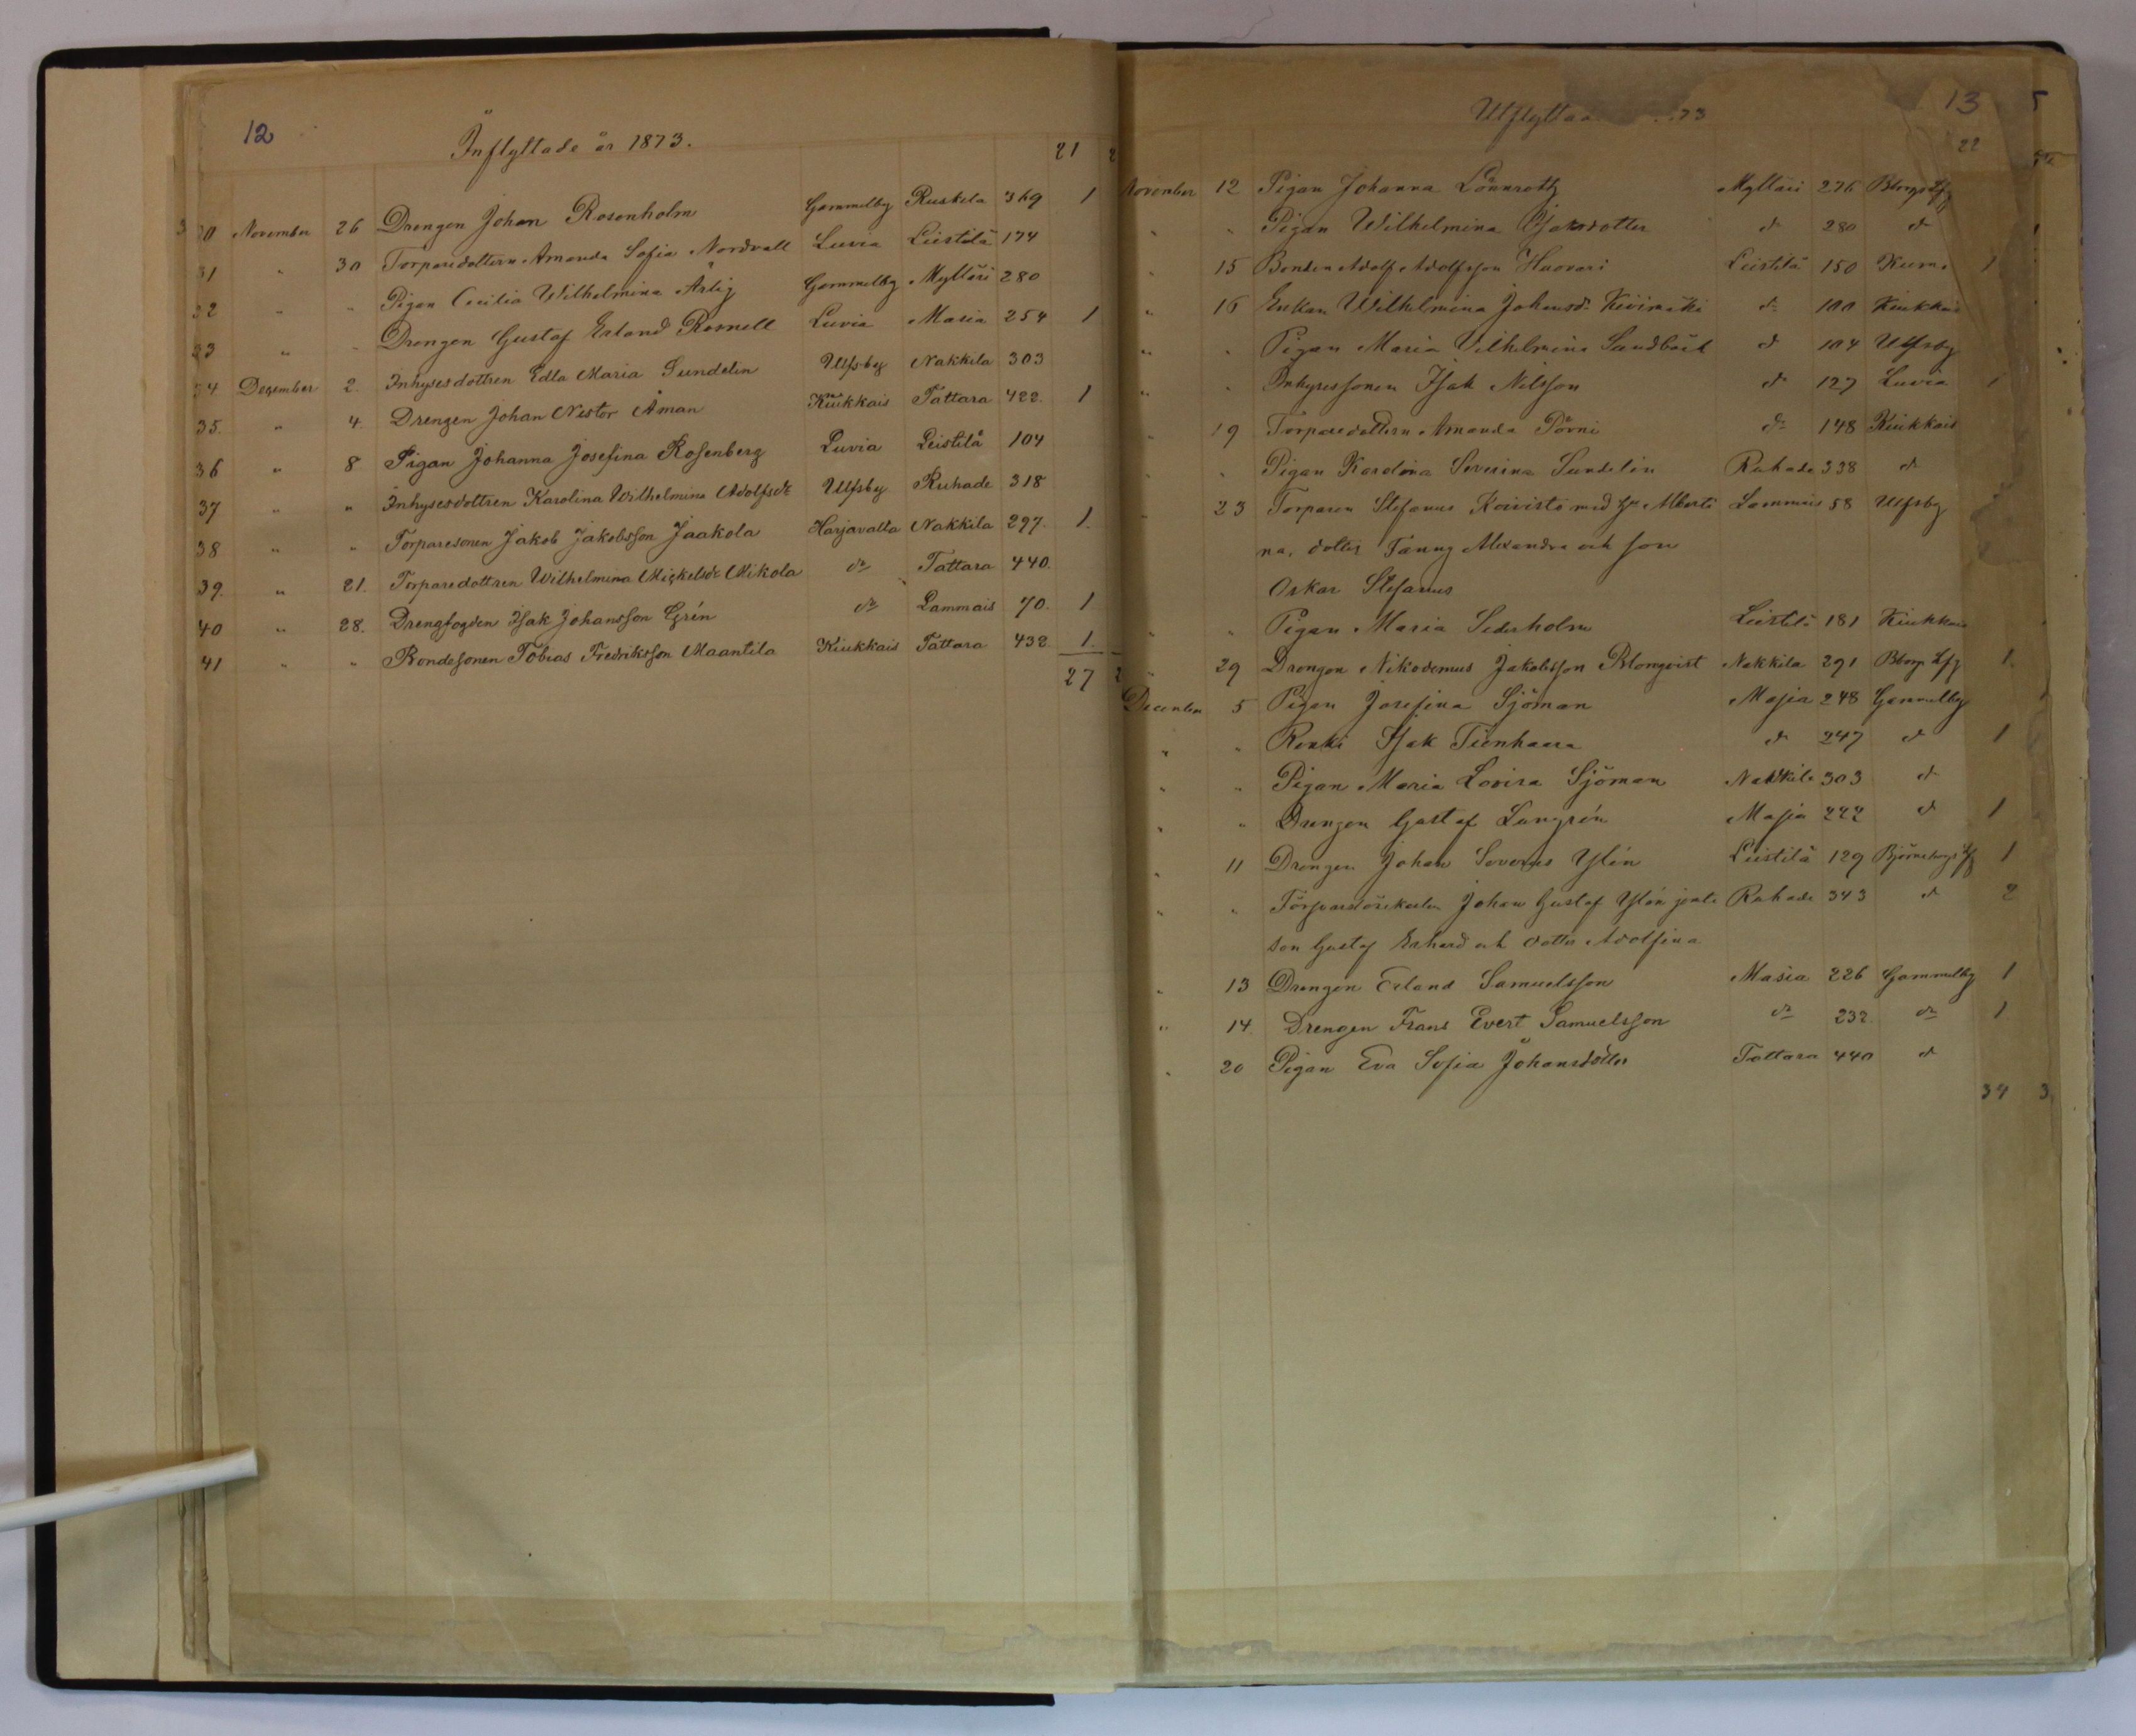 12
Inflyttade år 1873.
21 2
30 November 26 Drengen Johan Rosenholm Gammelby Ruskela 369 1
31 " 30 Torparedottern Amanda Sofia Nordvall Luvia Leistilä 174
32 " " Pigan Cecilia Wilhelmina Ärlig Gammelby Mylläri 280
33 " " Drengen Gustaf Erland Rosnell Luvia Masia 254 1
34 December 2. Inhysesdottren Edla Maria Sundelin Ulfsby Nakkila 303
35. " 4. Drengen Johan Nestor Åman Kiukkais Tattara 422. 1
36 " 8 Pigan Johanna Josefina Rosenberg Luvia Leistilä 104
37 " " Inhysesdottren Karolina Wilhelmina Adolfsdr Ulfsby Ruhade 318
38 " " Torparesonen Jakob Jakobsson Jaakola Harjavalta Nakkila 297. 1.
39. " 21. Torparedottren Wilhelmina Mickelsdr Mikola do Tattara 440.
40 " 28. Drengfogden Isak Johansson Grén do Lammais 70. 1
41 " " Bondesonen Tobias Fredriksson Maantila Kiukkais Tattara 432 1.
27 2
13
Utflyttad 73
22
November 12 Pigan Johanna Lönnroth Mylläri 276
" " Pigan Wilhelmina Isaksdotter d 280 d
" 15 Bonden Adolf Adolfsson Haovari Leistilä 150 Kumo 1
" 16 Enkan Wilhelmina Johansdr Kivimäki do 100 Kiukkais
" " Pigan Maria Vilhelmina Sandbäck d 104 Ulfsby
" " Inhysessonen Isak Nilsson do 127 Luvia 1
" 19 Torparedottern Amanda Pörni do 148 Kiukkais
" " Pigan Karolina Severina Sundelin Ruhade 338 d
" 23 Torparen Stefanus Koivisto med hu Alberti Lammais 58 Ulfsby
na, dotter Fanny Alexandra och son
Oskar Stefanus
" " Pigan Maria Sederholm Leistilä 181 Kiukkais
" 29 Drengen Nikodemus Jakobsson Blomqvist Nakkila 291 1.
December 5 Pigan Josefina Sjöman Masia 248 Gammelby
" " Renki Isak Tienhaara d 247 d 1
" " Pigan Maria Lovisa Sjöman Nakkila 303 d
" " Drengen Gustaf Lungrén Masia 222 d 1
" 11 Drengen Johan Severus Ylén Leistilä 129 Björneborgs 1
" " Johan Gustaf Ylén jemte Ruhade 343 d 2
son Gustaf Erhard och dotter Adolfina
" 13 Drengen Erland Samuelsson Masia 226 Gammelby 1
" 14 Drengen Frans Evert Samuelsson do 232. do 1
" 20 Pigan Eva Sofia Johansdotter Tattara 440 d
34 3